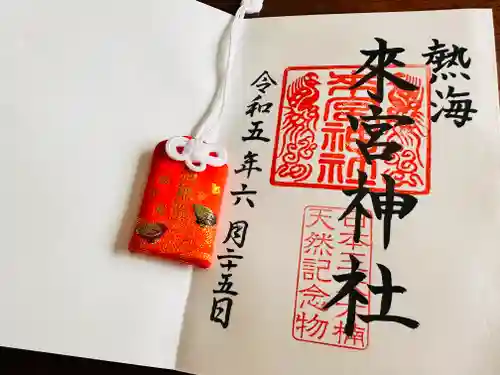 熱海
來宮神社
來宮神社
日本三大楠
天然記念物
令和五年六月二十五日